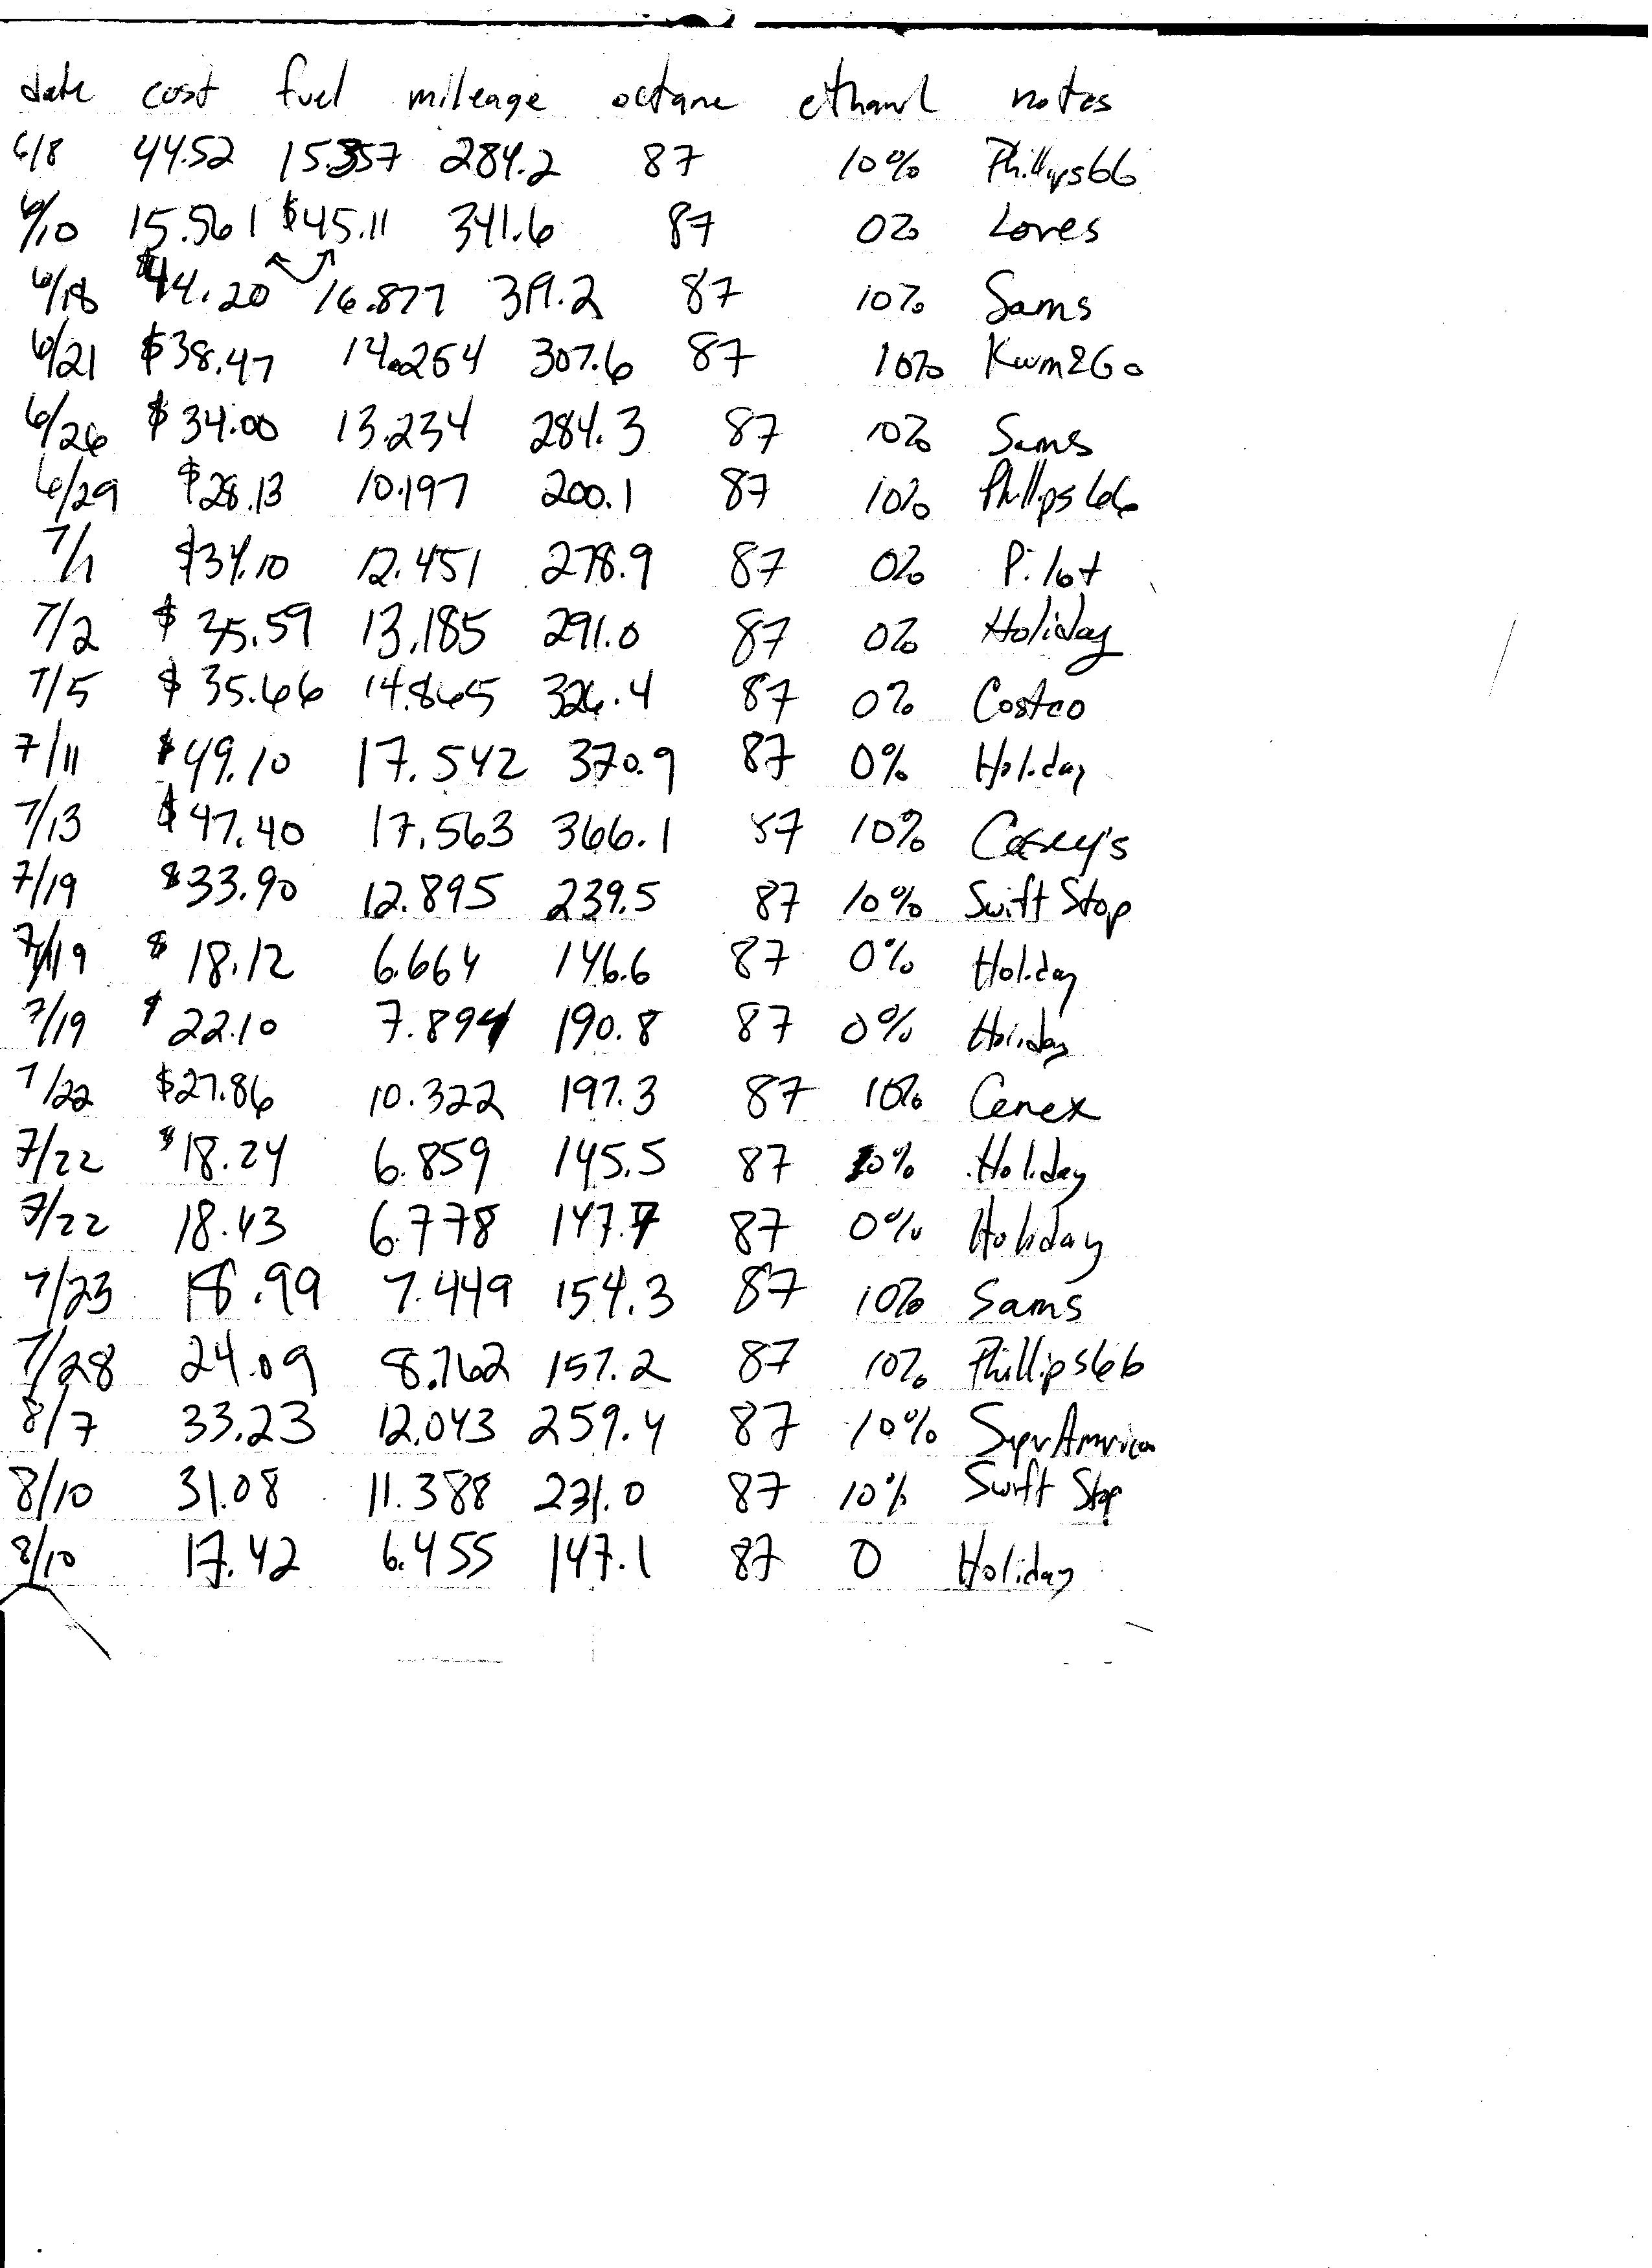 date cost fuel mileage octane ethanol notes
6/8 44.52 15.357 284.2 87 10% Phillips66
6/10 15.561 $45.11 341.6 87 0% Loves
6/18 $44.20 16.877 319.2 87 10% Sams
6/21 $38.47 14.254 307.6 87 10% Kum&Go
6/26 $34.00 13.234 284.3 87 10% Sams
6/29 $28.13 10.197 200.1 87 10% Phillips66
7/1 $34.10 12.451 278.9 87 0% Pilot
7/2 $35.59 13.185 291.0 87 0% Holiday
7/5 $35.66 14.865 326.4 87 0% Costco
7/11 $49.10 17.542 370.9 87 0% Holiday
7/13 $47.40 17.563 366.1 87 10% Casey's
7/19 $33.90 12.895 239.5 87 10% Swift Stop
7/19 $18.12 6.664 146.6 87 0% Holiday
7/19 $22.10 7.894 190.8 87 0% Holiday
7/22 $27.86 10.322 197.3 87 10% Cenex
7/22 $18.24 6.859 145.5 87 10% Holiday
7/22 18.43 6.778 147.7 87 0% Holiday
7/23 18.99 7.449 154.3 87 10% Sams
7/28 24.09 8.762 157.2 87 10% Phillips66
8/7 33.23 12.043 259.4 87 10% SuperAmerica
8/10 31.08 11.388 231.0 87 10% Swift Stop
8/10 17.42 6.455 147.1 87 0 Holiday